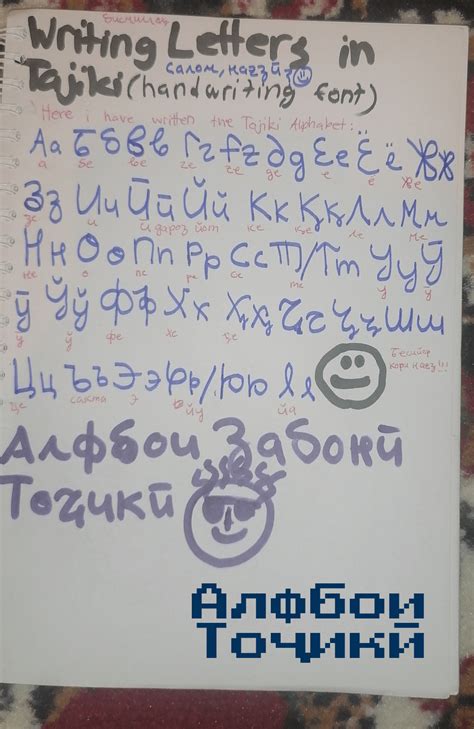 Бисмиллаҳ
Writing Letters in
салом, нағз
Tajiki (handwriting font)
Here i have written the Tajiki Alphabet:
Аа Бб Вв Гг Ғғ Дд Ее Ёё Жж
а бе ве ге ғе де е ё же
Зз Ии Ӣӣ Йй Кк Ққ Лл Мм
зе и и дароз йот ке қе ле ме
Нн Оо Пп Рр Сс Т/Тт Уу Ӯ
не о пе ре се те у ӯ
ӯ Ӯӯ Фф Хх Ҳҳ Чч Ҷҷ Шш
ӯ ӯ фе хе ҳе
Цц Ъъ Ээ Юю Яя
це сакта э йу йа
Бисёр
кори нағз!!!
Алфбои Забонӣ
Тоҷикӣ
Алфбои
Тоҷикӣ